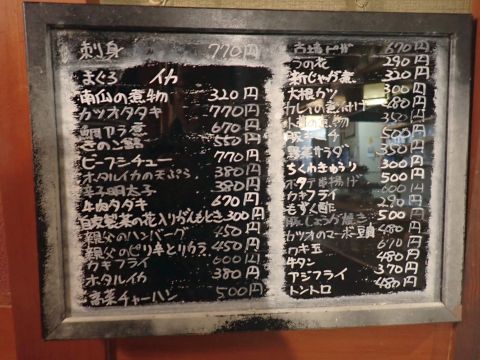 刺身 770円
まぐろ イカ
南仏の煮物 320円
カツオタタキ 770円
鯛アラ煮 670円
きのこ鍋 550円
ビーフシチュー 770円
ホタルイカの天ぷら 380円
辛子明太子 380円
牛肉タタキ 670円
自家製菜の花入りがんもどき 300円
親父のハンバーグ 450円
親父のピリ辛とりカラ 450円
カキフライ 600円
ホタルイカ 380円
高菜チャーハン 500円
670円
うの花 290円
新じゃが煮 320円
大根カツ 300円
カレイの煮付け 480円
煮物 350円
500円
野菜サラダ 350円
ちくわきゅうり 300円
ホタテ串揚げ 500円
カキフライ 600円
もずく酢 290円
豚しょうが焼き 500円
カツオのマーボ豆腐 480円
ワキ玉 670円
牛タン 480円
アジフライ 370円
トントロ 480円